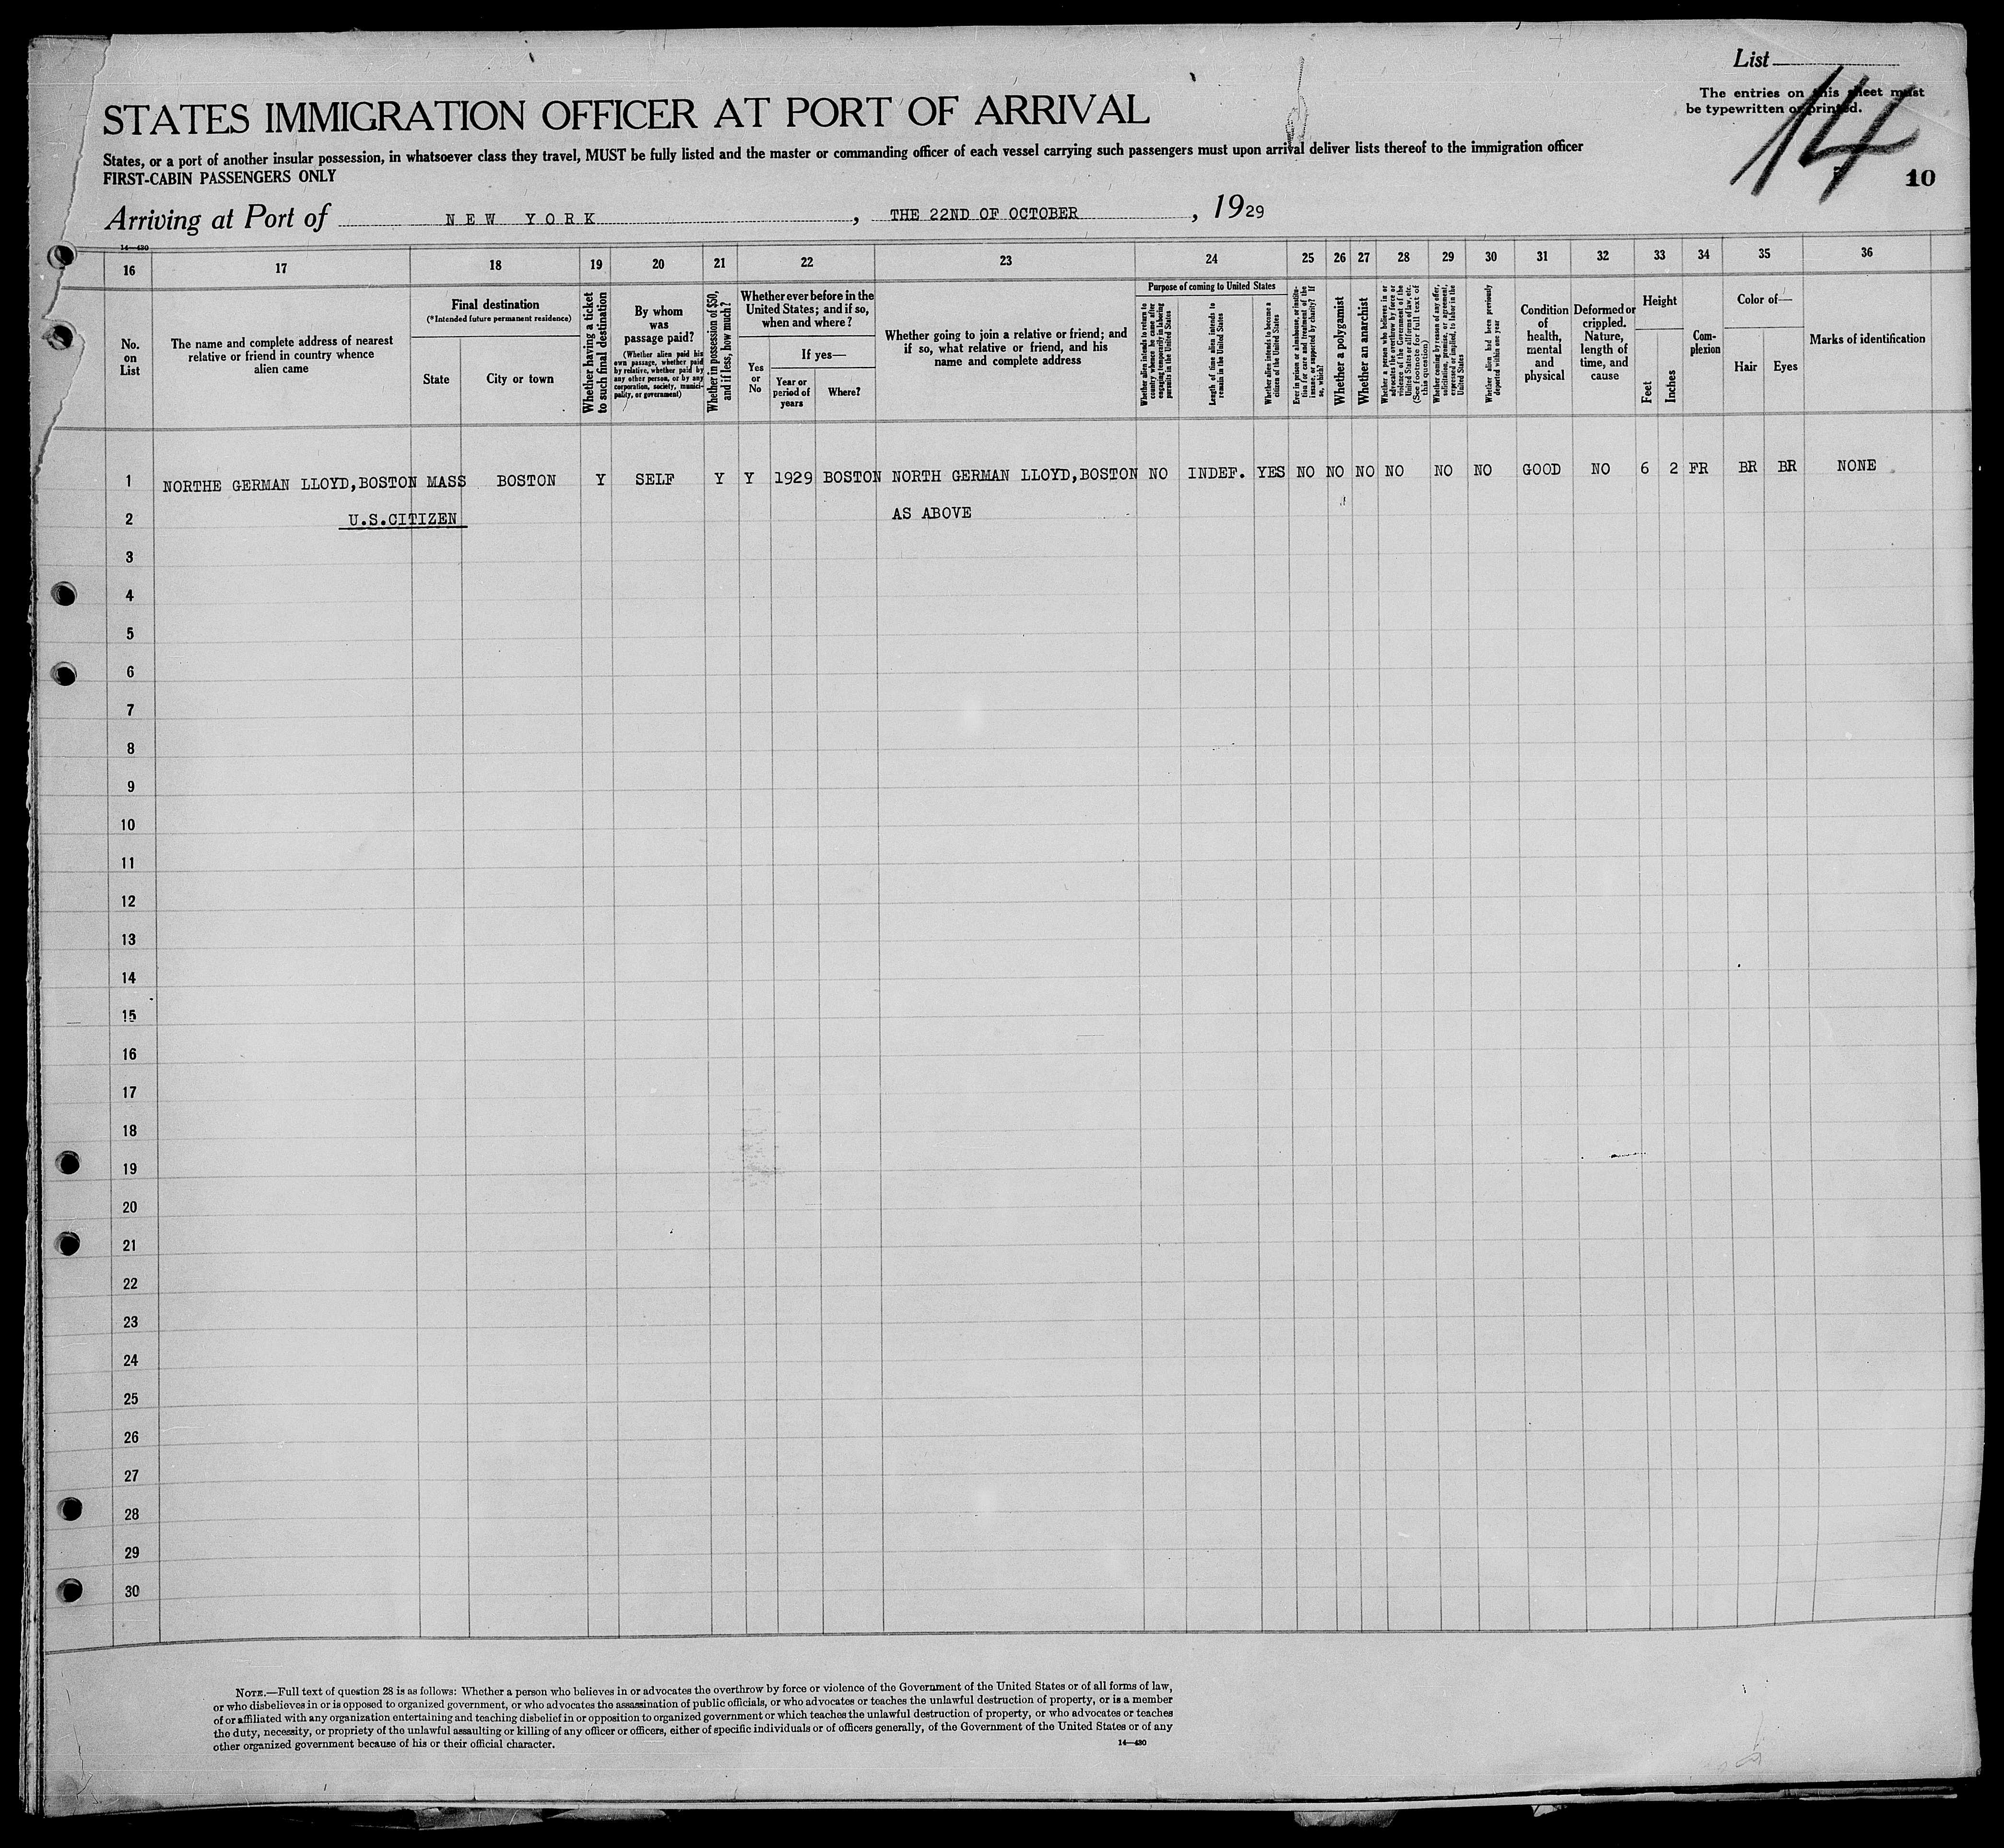 List
The entries on this sheet must
be typewritten or printed.
14
10
STATES IMMIGRATION OFFICER AT PORT OF ARRIVAL
States, or a port of another insular possession, in whatsoever class they travel, MUST be fully listed and the master or commanding officer of each vessel carrying such passengers must upon arrival deliver lists thereof to the immigration officer
FIRST-CABIN PASSENGERS ONLY
Arriving at Port of NEW YORK, THE 22ND OF OCTOBER, 1929
14—430
16 17 18 19 20 21 22 23 24 25 26 27 28 29 30 31 32 33 34 35 36
No.
on
List
The name and complete address of nearest
relative or friend in country whence
alien came
Final destination
(*Intended future permanent residence)
State
City or town
Whether having a ticket
to such final destination
By whom
was
passage paid?
(Whether alien paid his
own passage, whether paid
by relative, whether paid by
any other person, or by any
corporation, society, munici-
pality, or government)
Whether in possession of $50,
and if less, how much?
Whether ever before in the
United States; and if so,
when and where?
Yes
or
No
If yes—
Year or
period of
years
Where?
Whether going to join a relative or friend; and
if so, what relative or friend, and his
name and complete address
Purpose of coming to United States
Whether alien intends to return to
country whence he came after
engaging temporarily in laboring
pursuits in the United States
Length of time alien intends to
remain in the United States
Whether alien intends to become a
citizen of the United States
Ever in prison or almshouse, or institu-
tion for care and treatment of the
insane, or supported by charity? If
so, which?
Whether a polygamist
Whether an anarchist
Whether a person who believes in or
advocates the overthrow by force or
violence of the Government of the
United States or all forms of law, etc.
(See footnote for full text of
this question)
Whether coming by reason of any offer,
solicitation, promise, or agreement,
expressed or implied, to labor in the
United States
Whether alien had been previously
deported within one year
Condition
of
health,
mental
and
physical
Deformed or
crippled.
Nature,
length of
time, and
cause
Height
Feet
Inches
Com-
plexion
Color of—
Hair
Eyes
Marks of identification
1 NORTHE GERMAN LLOYD,BOSTON MASS BOSTON Y SELF Y Y 1929 BOSTON NORTH GERMAN LLOYD,BOSTON NO INDEF. YES NO NO NO NO NO NO GOOD NO 6 2 FR BR BR NONE
2 U.S.CITIZEN AS ABOVE
3
4
5
6
7
8
9
10
11
12
13
14
15
16
17
18
19
20
21
22
23
24
25
26
27
28
29
30
NOTE.—Full text of question 28 is as follows: Whether a person who believes in or advocates the overthrow by force or violence of the Government of the United States or of all forms of law,
or who disbelieves in or is opposed to organized government, or who advocates the assassination of public officials, or who advocates or teaches the unlawful destruction of property, or is a member
of or affiliated with any organization entertaining and teaching disbelief in or opposition to organized government or which teaches the unlawful destruction of property, or who advocates or teaches
the duty, necessity, or propriety of the unlawful assaulting or killing of any officer or officers, either of specific individuals or of officers generally, of the Government of the United States or of any
other organized government because of his or their official character.
14—430